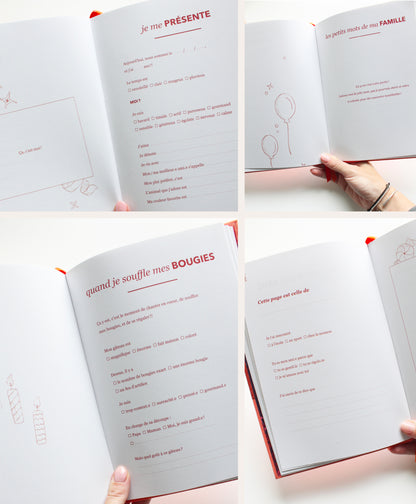 je me PRÉSENTE
Aujourd'hui, nous sommes le / /
et j'ai ans !!
Le temps est
ensoleillé clair nuageux pluvieux
MOI ?
Je suis
bavard timide actif paresseux gourmand
intrépide généreux égoïste nerveux calme
J'aime
Je déteste
Je vis avec
Mon / ma meilleur.e ami.e s'appelle
Mon plat préféré, c'est
L'animal que j'adore est
Ma couleur favorite est
Là, c'est moi !
les petits mots de ma FAMILLE
quand je souffle mes BOUGIES
Ça y est, c'est le moment de chanter en cœur, de souffler
mes bougies, et de se régaler !!
Mon gâteau est
magnifique énorme fait maison coloré
Dessus, il y a
le nombre de bougies exact une énorme bougie
un feu d'artifice
Je suis
trop content.e surexcité.e pressé.e gourmand.e
En charge de sa découpe :
Papa Maman Moi, je suis grand.e !
Mais quel goût a ce gâteau ?
Cette page est celle de
J'ai rencontré
à l'école au sport dans la maison
Tu es mon ami.e parce que
tu es gentil.le tu es rigolo.te
je m'amuse avec toi
J'ai envie de te dire que